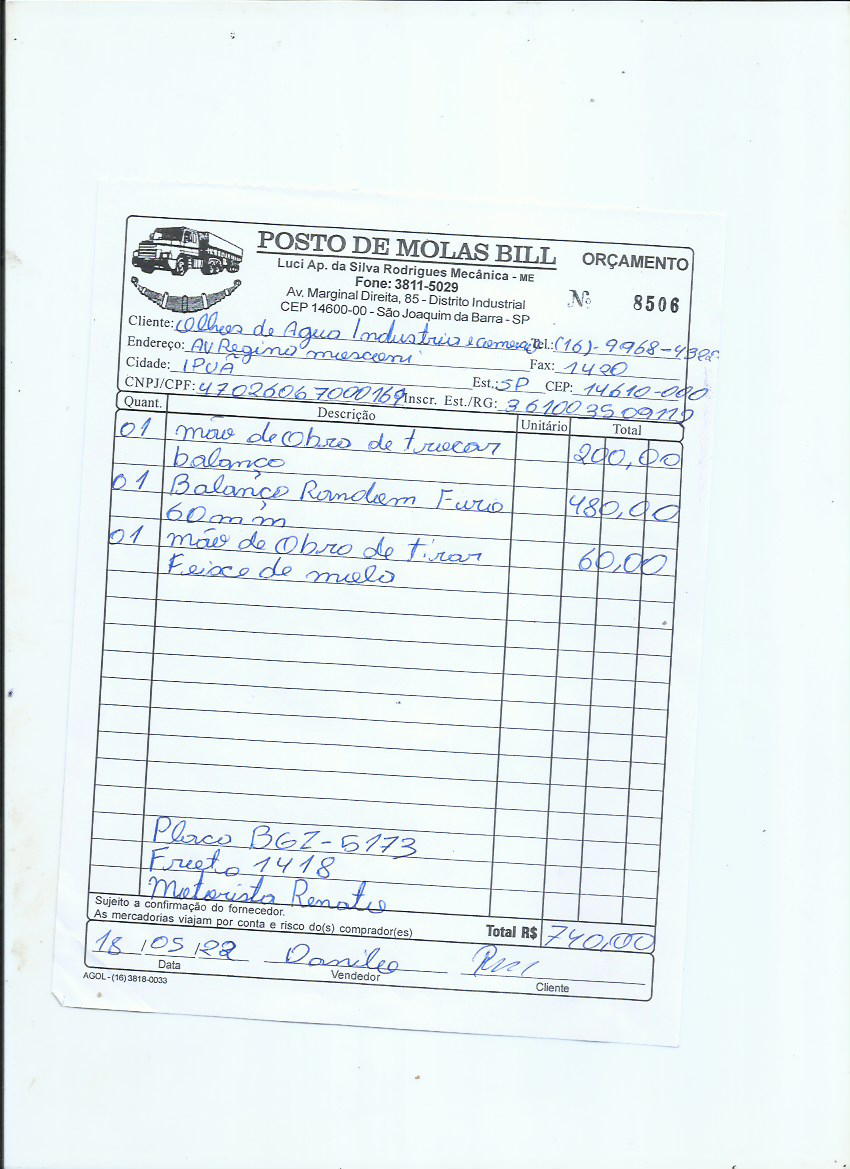 POSTO DE MOLAS BILL
ORÇAMENTO
Luci Ap. da Silva Rodrigues Mecânica - ME
Fone: 3811-5029
Av. Marginal Direita, 85 - Distrito Industrial
CEP 14600-00 - São Joaquim da Barra - SP
Nº 8506
Cliente: Olhos de Agua Industria e comercio Tel.: (16)-9968-4388
Endereço: AV Regino Fax: 1420
Cidade: IPUÃ Est.: SP CEP: 14610-000
CNPJ/CPF: 47026067000169 Inscr. Est./RG: 361003509119
Quant. Descrição Unitário Total
01 mão de Obra de trocar 200,00
balanço
01 Balanço Randem Furo 480,00
60 mm
01 mão de Obra de tirar 60,00
Feixe de mola
Placa BGZ-5173
Frota 1418
Motorista Renato
Sujeito a confirmação do fornecedor.
As mercadorias viajam por conta e risco do(s) comprador(es)
Total R$ 740,00
18 / 05 / 22 Danilo
Data Vendedor Cliente
AGOL - (16) 3818-0033